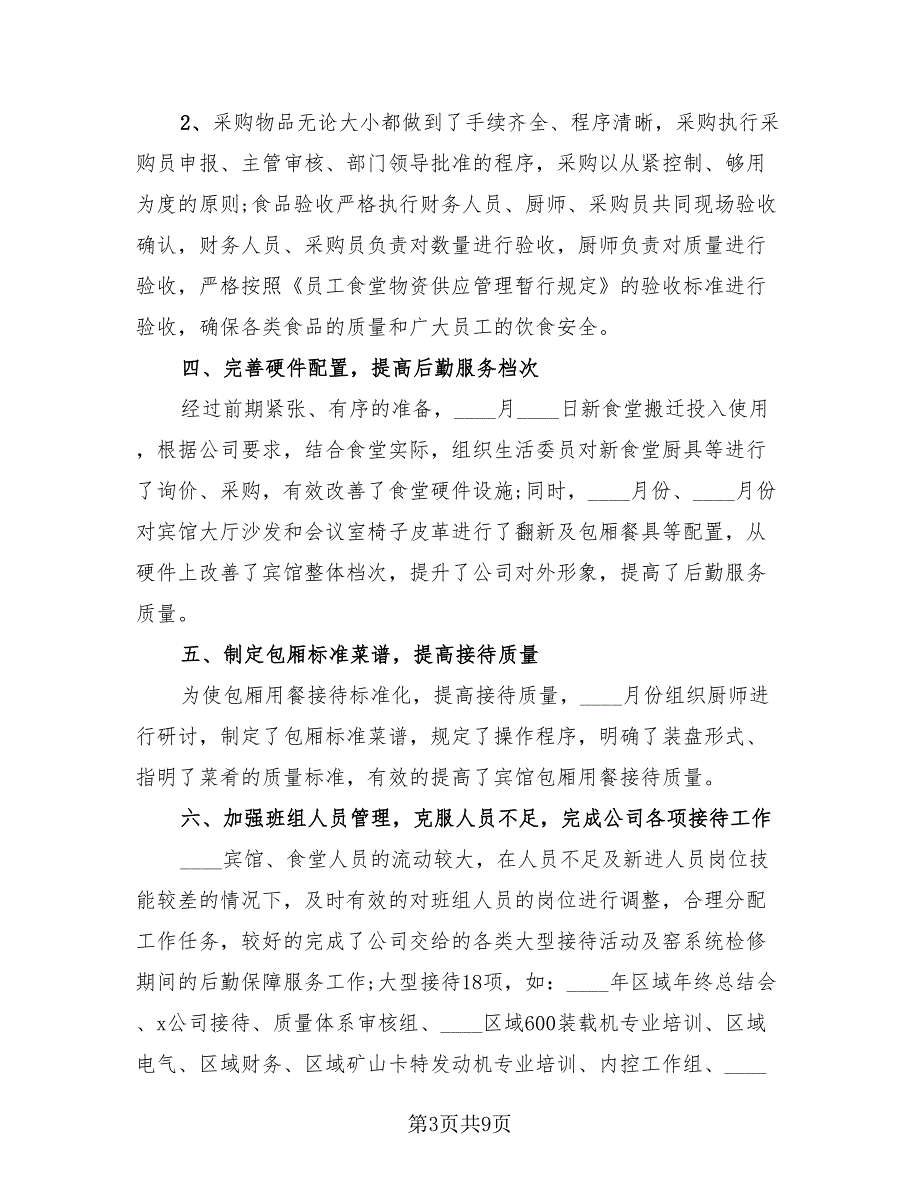 2、采购物品无论大小都做到了手续齐全、程序清晰，采购执行采
购员申报、主管审核、部门领导批准的程序，采购以从紧控制、够用
为度的原则;食品验收严格执行财务人员、厨师、采购员共同现场验收
确认，财务人员、采购员负责对数量进行验收，厨师负责对质量进行
验收，严格按照《员工食堂物资供应管理暂行规定》的验收标准进行
验收，确保各类食品的质量和广大员工的饮食安全。
四、完善硬件配置，提高后勤服务档次
经过前期紧张、有序的准备，____月____日新食堂搬迁投入使用
，根据公司要求，结合食堂实际，组织生活委员对新食堂厨具等进行
了询价、采购，有效改善了食堂硬件设施;同时，____月份、____月份
对宾馆大厅沙发和会议室椅子皮革进行了翻新及包厢餐具等配置，从
硬件上改善了宾馆整体档次，提升了公司对外形象，提高了后勤服务
质量。
五、制定包厢标准菜谱，提高接待质量
为使包厢用餐接待标准化，提高接待质量，____月份组织厨师进
行研讨，制定了包厢标准菜谱，规定了操作程序，明确了装盘形式、
指明了菜肴的质量标准，有效的提高了宾馆包厢用餐接待质量。
六、加强班组人员管理，克服人员不足，完成公司各项接待工作
____宾馆、食堂人员的流动较大，在人员不足及新进人员岗位技
能较差的情况下，及时有效的对班组人员的岗位进行调整，合理分配
工作任务，较好的完成了公司交给的各类大型接待活动及窑系统检修
期间的后勤保障服务工作;大型接待18项，如：____年区域年终总结会
、x公司接待、质量体系审核组、____区域600装载机专业培训、区域
电气、区域财务、区域矿山卡特发动机专业培训、内控工作组、____
第3页共9页